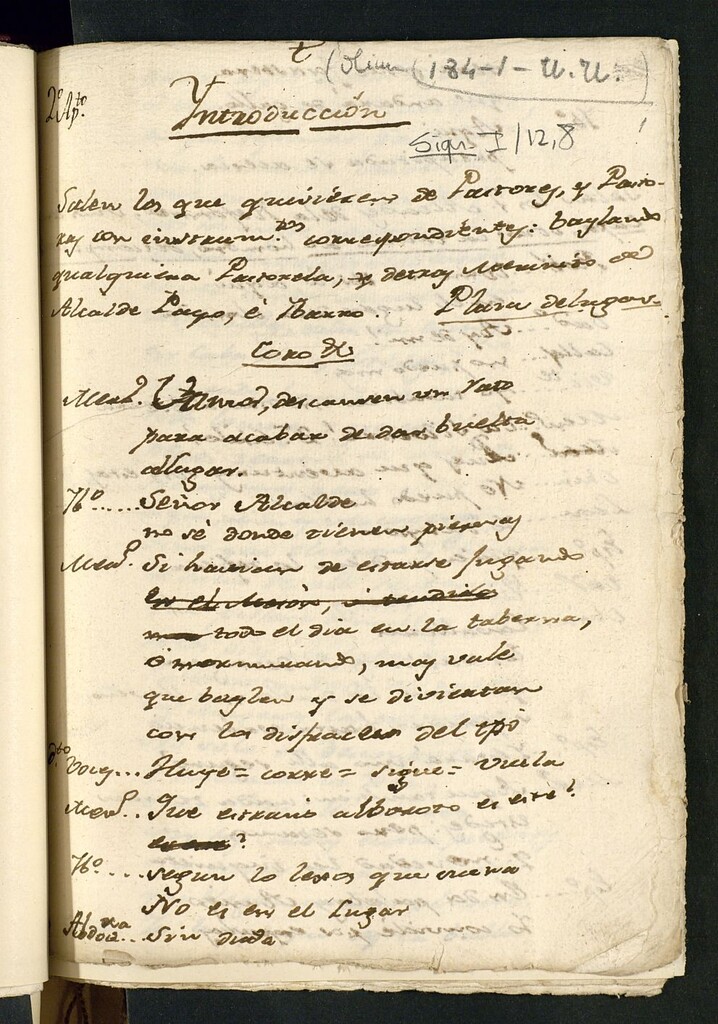 t
(olim (184-1-N.N.)
2º Apto.
Introducción
Sign. I/12,8
Salen los que quisieren de Pastores, y Pasto-
ras con instrum.tos correspondientes: baylando
qualquiera Pastorela, y detras Merinito de
Alcalde Payo, é Ibarro. Plaza de lugar.
Coro
Mer.º Amos, descansen un rato
para acabar de dar buelta
al lugar.
Yb.º..... Señor Alcalde
no sé donde tienen piernas
Mer.º Si havian de estarse jugando
en el Meson,
todo el dia en la taberna,
ó murmurando, mas vale
que baylen y se diviertan
con los disfraces del tpõ
dto Voces... Huye= corre= sigue= vuela
Mer.º.. Que estraño alboroto es este?
Yb.º.... segun lo lexos que suena
No es en el Lugar
sin duda